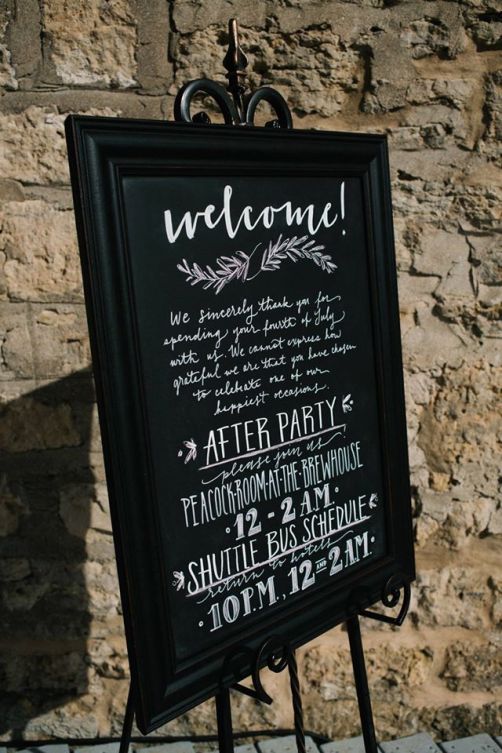 welcome!
We sincerely thank you for
spending your fourth of July
with us. We cannot express how
grateful we are that you have chosen
to celebrate one of our
happiest occasions.
AFTER PARTY
please join us
PEACOCK·ROOM·AT·THE·BREWHOUSE
·12 - 2 AM·
SHUTTLE BUS SCHEDULE
return to hotels
·10P.M., 12 AND 2AM.